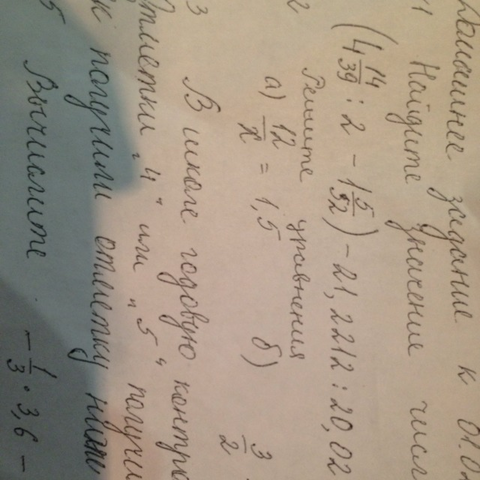 Домашнее задание к 01.0
1 Найдите значение числ
(4 14/39 : 2 - 1 5/52) - 21,2212 : 20,02
2 Решите уравнения
а) 12/x = 1,5 б) 3/2
3 В школе годовую контро
отметки "4" или "5" получи
к получили отметку
5 Вычислите -1/3 · 3,6 -